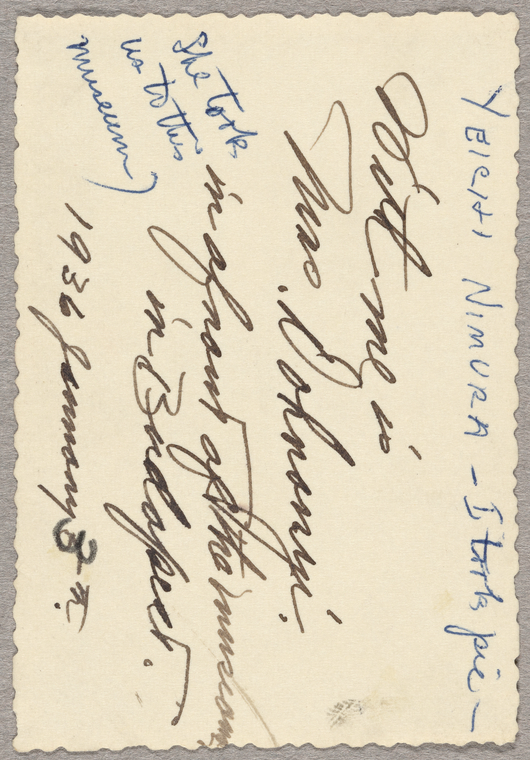 YEICHI NIMURA - I took pic -
With me is
Mrs. Dohnanyi.
in afront of the museum
in Budapest.
1936 January 3
She took
us to this
museum)